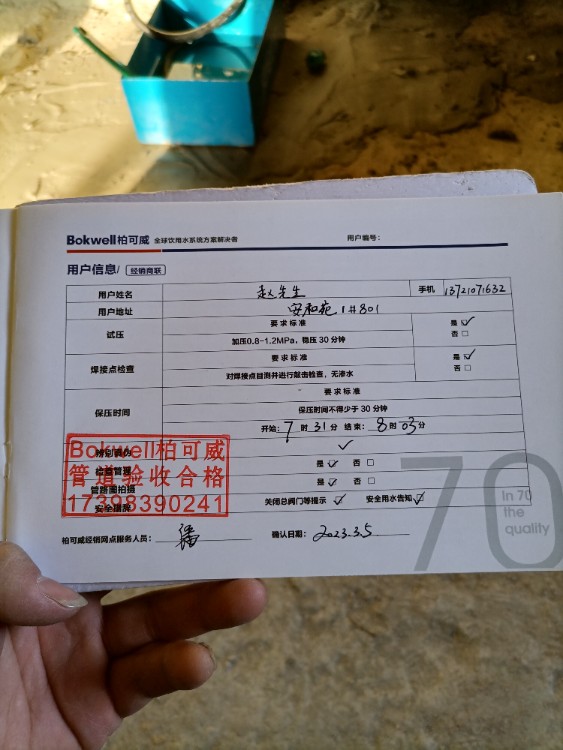 Bokwell柏可威 全球饮用水系统方案解决者 用户编号:
用户信息/ 经销商联
用户姓名 赵先生 手机 13721071632
用户地址 安和苑 1#801
试压 要求标准 是 ☑
加压0.8-1.2MPa，稳压 30 分钟 否 □
焊接点检查 要求标准 是 ☑
对焊接点目测并进行敲击检查，无渗水 否 □
保压时间 要求标准
保压时间不得少于 30 分钟
开始: 7 时 31 分 结束: 8 时 03 分
辨别真伪 ✓
是 ☑ 否 □
管路图拍摄 是 ☑ 否 □
安全提醒 关闭总阀门等提示 ☑ 安全用水告知 ☑
Bokwell柏可威
管道验收合格
17398390241
70
In 70
the
quality
柏可威经销网点服务人员: 潘 确认日期: 2023.3.5